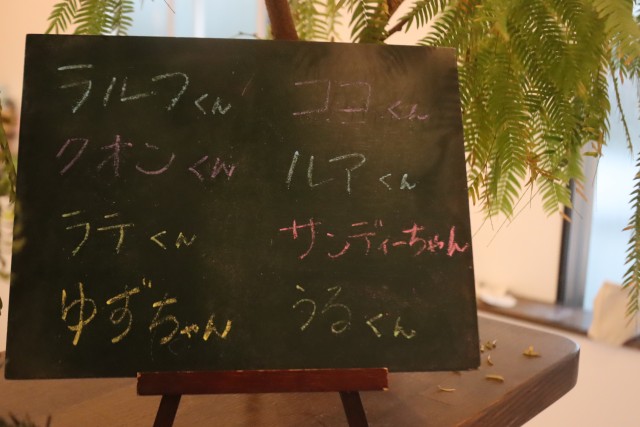 ラルフくん
ココくん
クオンくん
ルアくん
ラテくん
サンディーちゃん
ゆずちゃん
うるくん